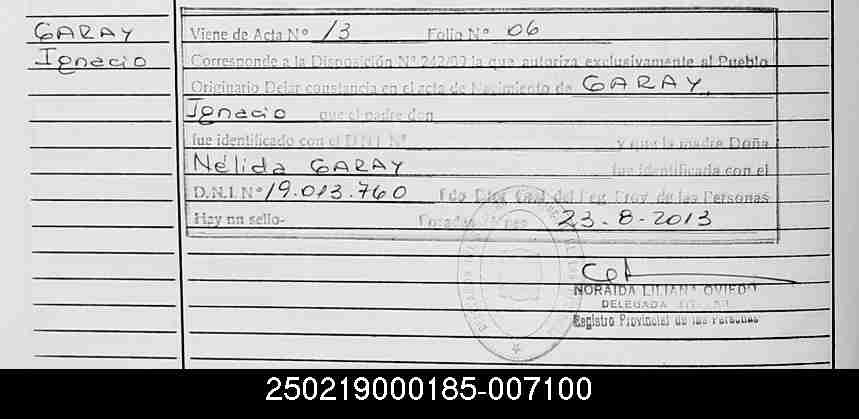 GARAY
Ignacio
Viene de Acta Nº 13 Folio Nº 06
Corresponde a la Disposición Nº 242/02 la que autoriza exclusivamente al Pueblo
Originario Dejar constancia en el acta de Nacimiento de GARAY,
Ignacio que el padre don
fue identificado con el D.N.I. Nº y que la madre Doña
Nélida GARAY fue identificada con el
D.N.I. Nº 19.013.760 Fdo. Gral. del Reg. Prov. de las Personas
Hay un sello- Posadas, Mnes 23-8-2013
NORAIDA LILIANA OVIEDO
DELEGADA
Registro Provincial de las Personas
250219000185-007100